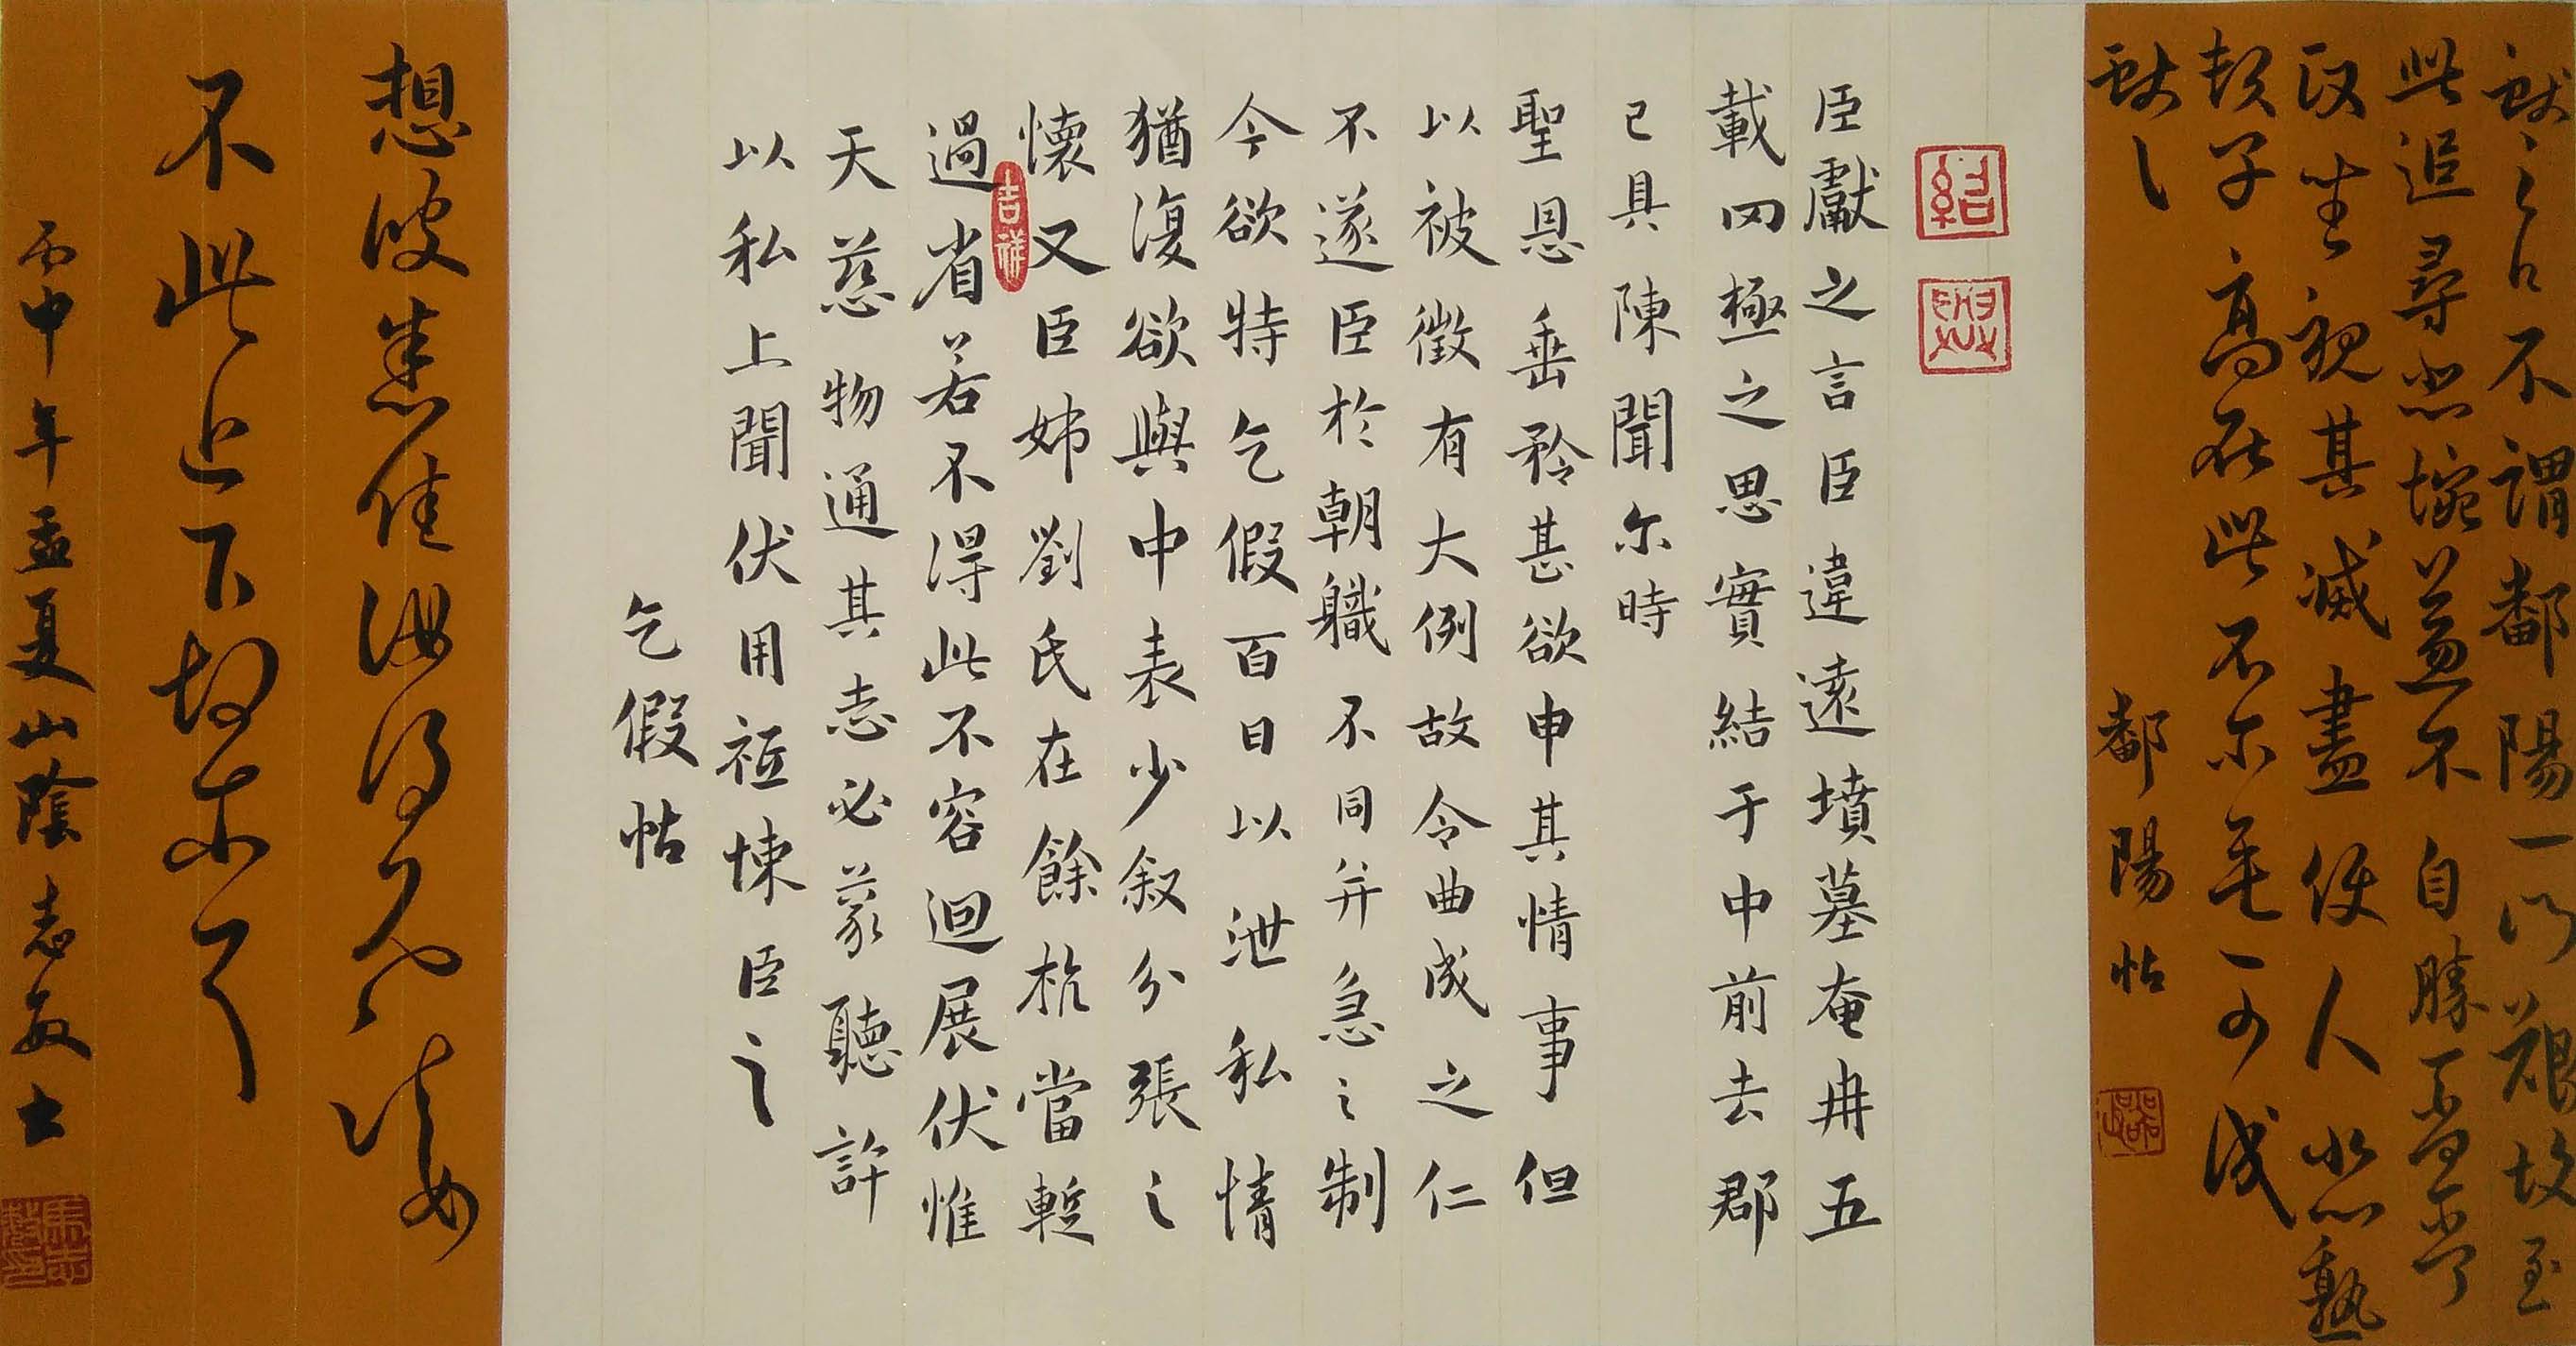 獻之白不謂鄱陽一門艱故至
此追尋悲惋益不自勝
政坐視其滅盡使人悲熱
頼子高在此不尔無一可成
獻之
鄱陽帖
臣獻之言臣違遠墳墓奄冉五
載罔極之思實結于中前去郡
已具陳聞尓時
聖恩垂矜甚欲申其情事但
以被徵有大例故令曲成之仁
不遂臣於朝職不同并急之制
今欲特乞假百日以泄私情
猶復欲與中表少叙分張之
懷又臣姊劉氏在餘杭當暫
過省若不得此不容迴展伏惟
天慈物通其志必蒙聽許
以私上聞伏用祗悚臣之
乞假帖
吉祥
想彼悉佳
不此上下故
丙申年孟夏山陰志敏士